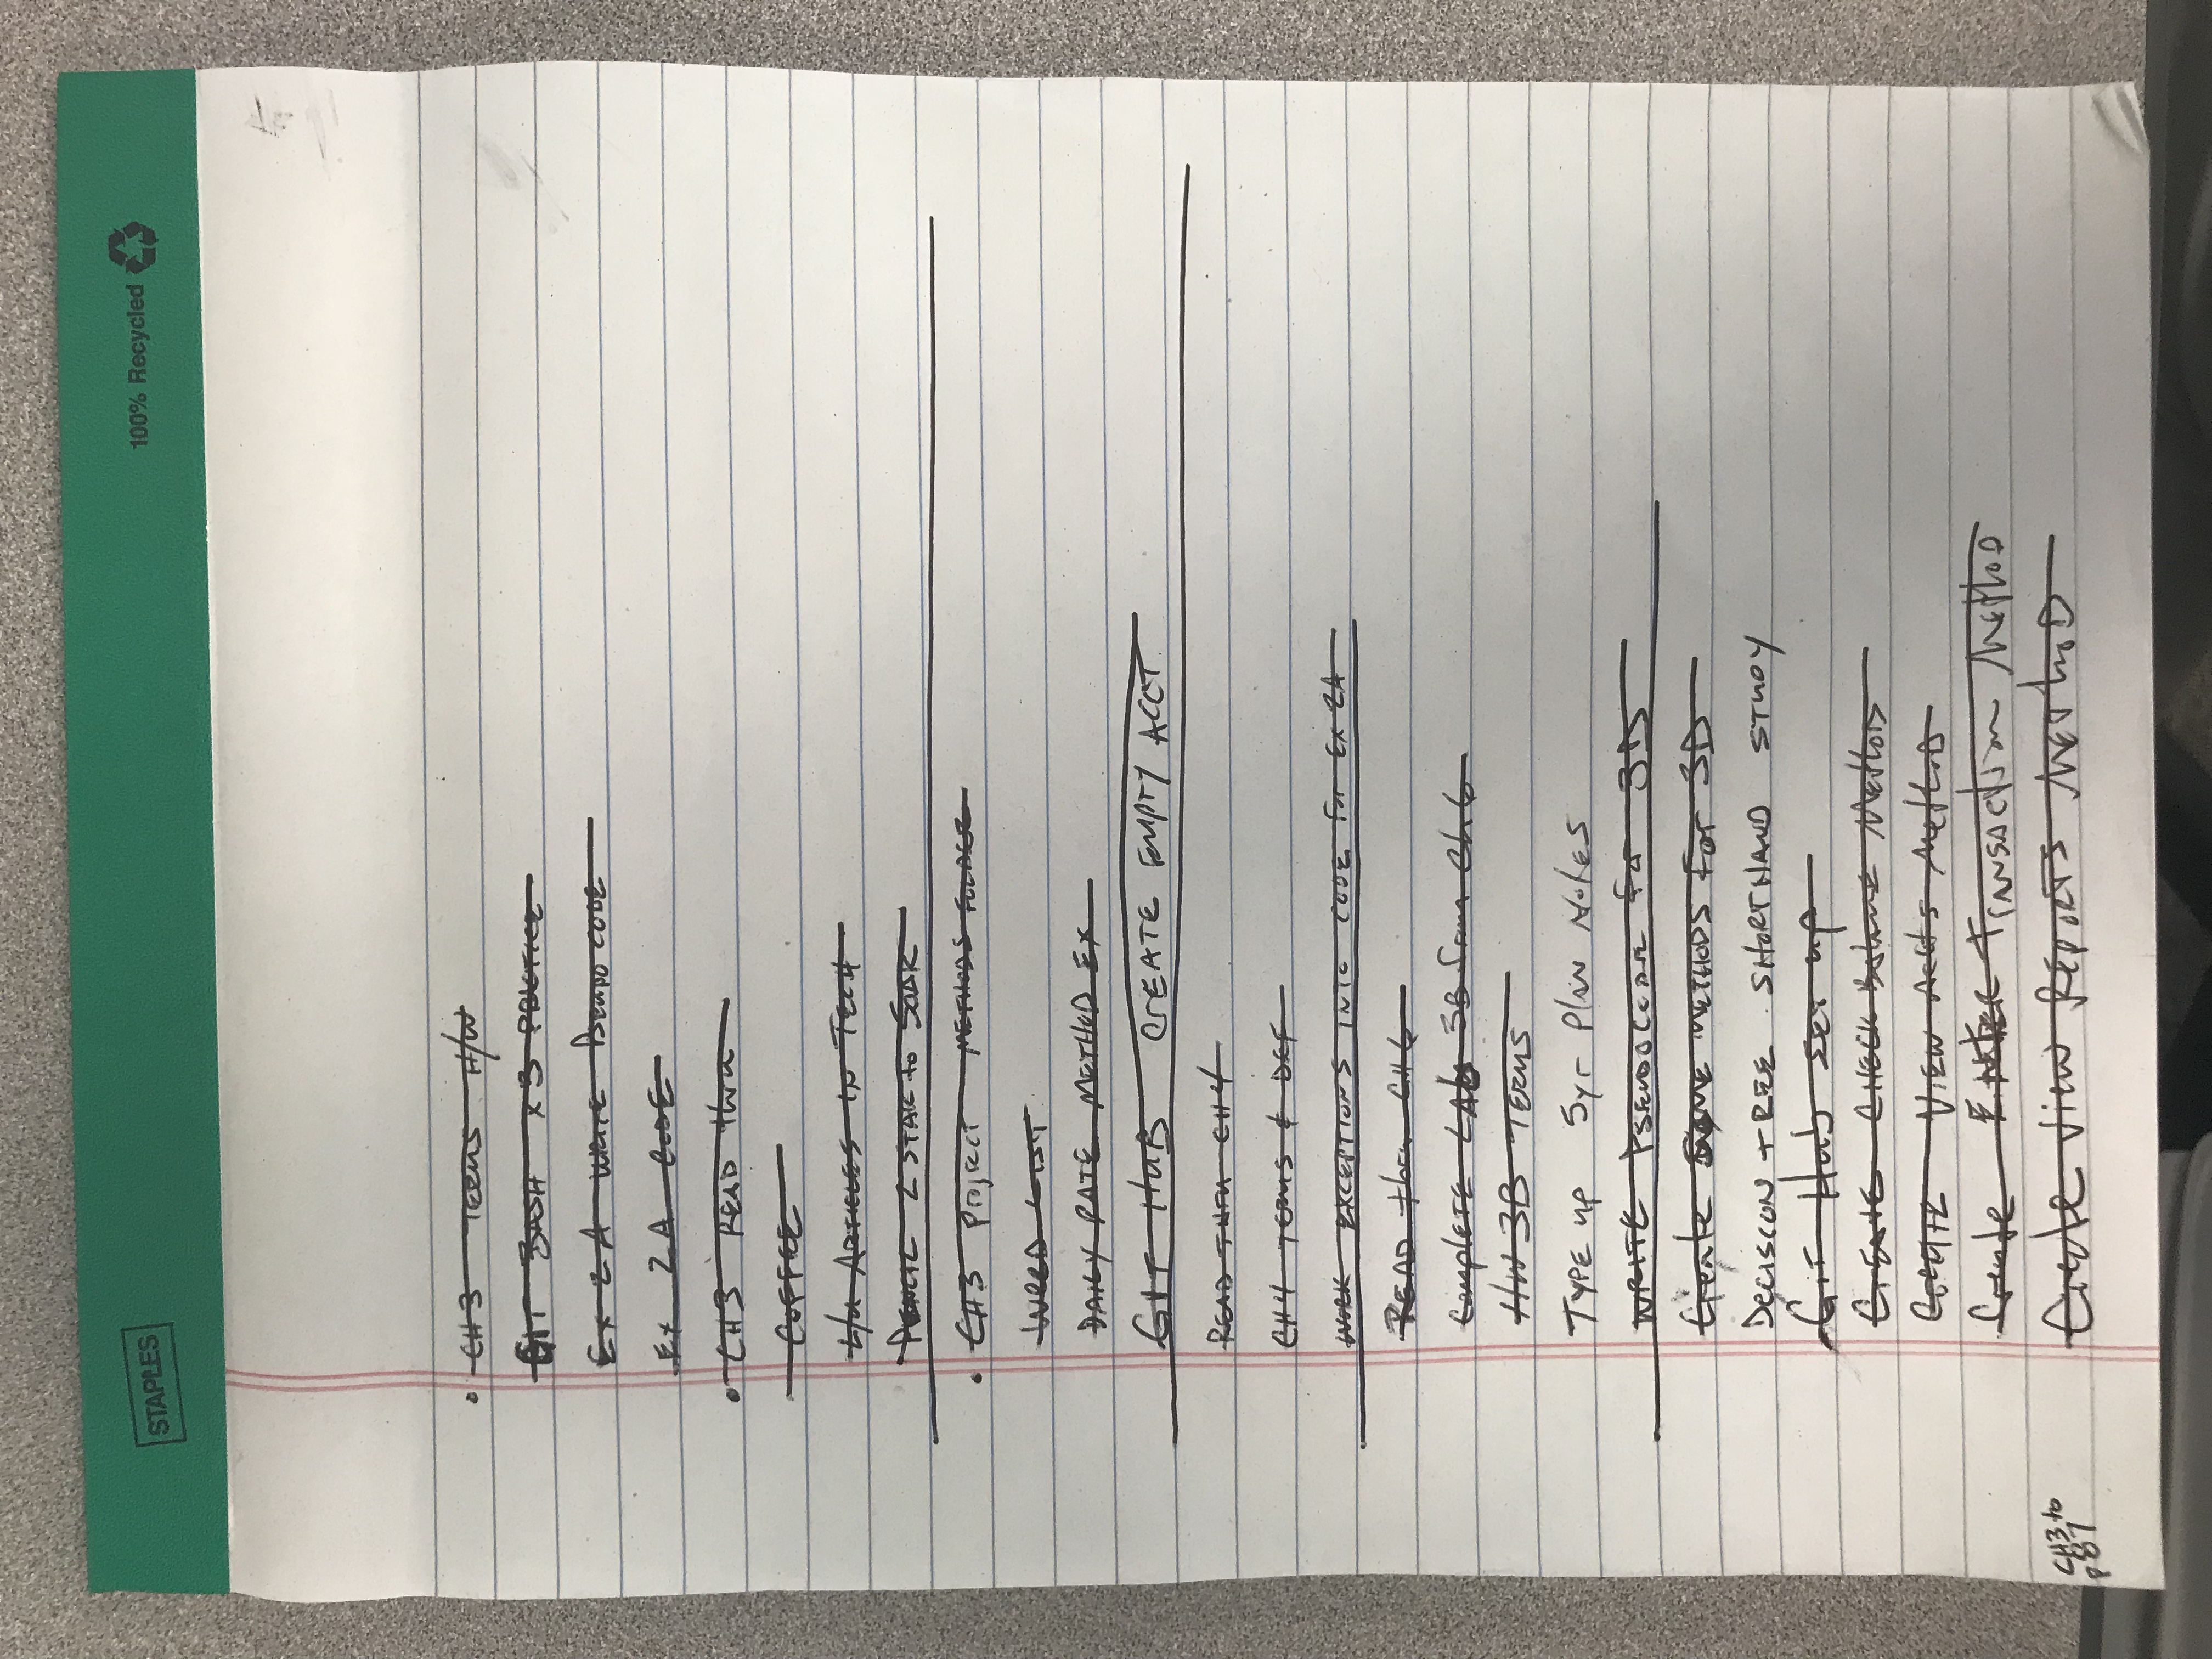 STAPLES
100% Recycled
CH 3 TERMS H/W
GIT BASH x 3 PRACTICE
Ex 2A WRITE PSEUDO CODE
Ex 2A CODE
CH3 READ thru
COFFEE
L/U ARTICLES IN TECH
PENCIL 2 STAR to
CH3 Project METHODS FOLDER
WEED LIST
DAILY RATE METHOD EX
GIT HUB CREATE EMPTY ACCT.
READ THRU CH4
CH4 TERMS & DEF
WORK EXCEPTIONS INTO CODE For Ex 2A
READ thru CH 6
Complete LAb 3B from Ch 6
HW 3B TERMS
TYPE up 5yr Plan NotES
WRITE PSEUDOCODE for 3D
Create SOME METHODS For 3D
DECISION TREE SHORTHAND STUDY
GIT Hub SET up
CREATE CHECK Balance Method
Create VIEW Accts Method
Create ENTER TRANSACTION METhOD
Create View REPORTS METhOD
CH3 to
p 87